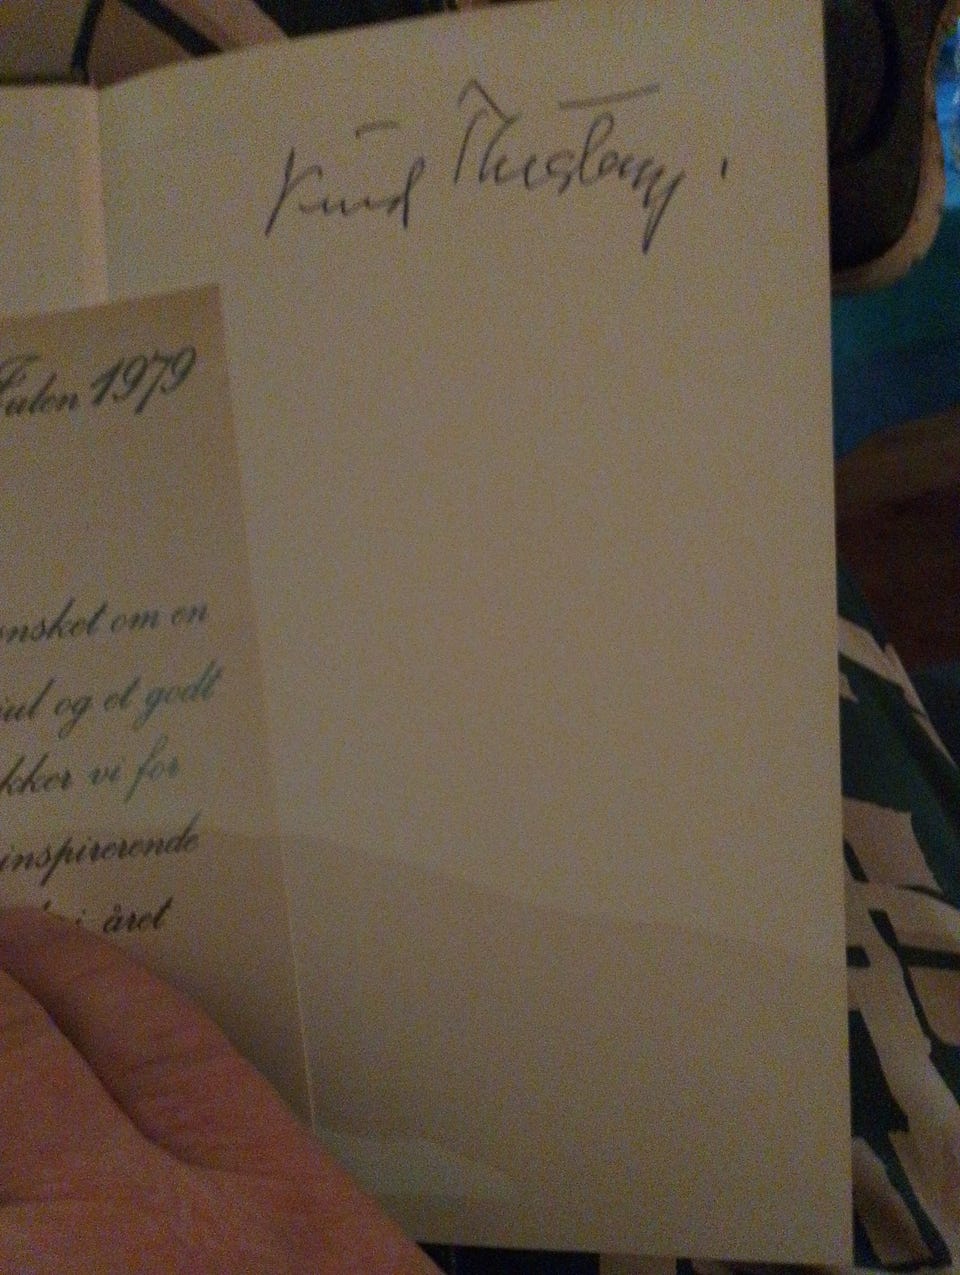 Knud
Julen 1979
ønsket om en
jul og et godt
kker vi for
inspirerende
i året